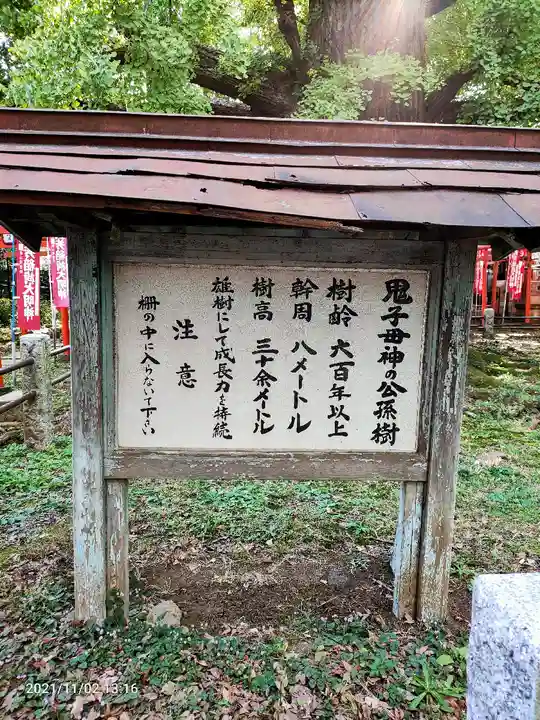 鬼子母神の公孫樹
樹齢 六百年以上
幹周 八メートル
樹高 三十余メートル
雄樹にして成長力を持続
注意
柵の中に入らないで下さい
稲荷大明神
2021/11/02 13:16